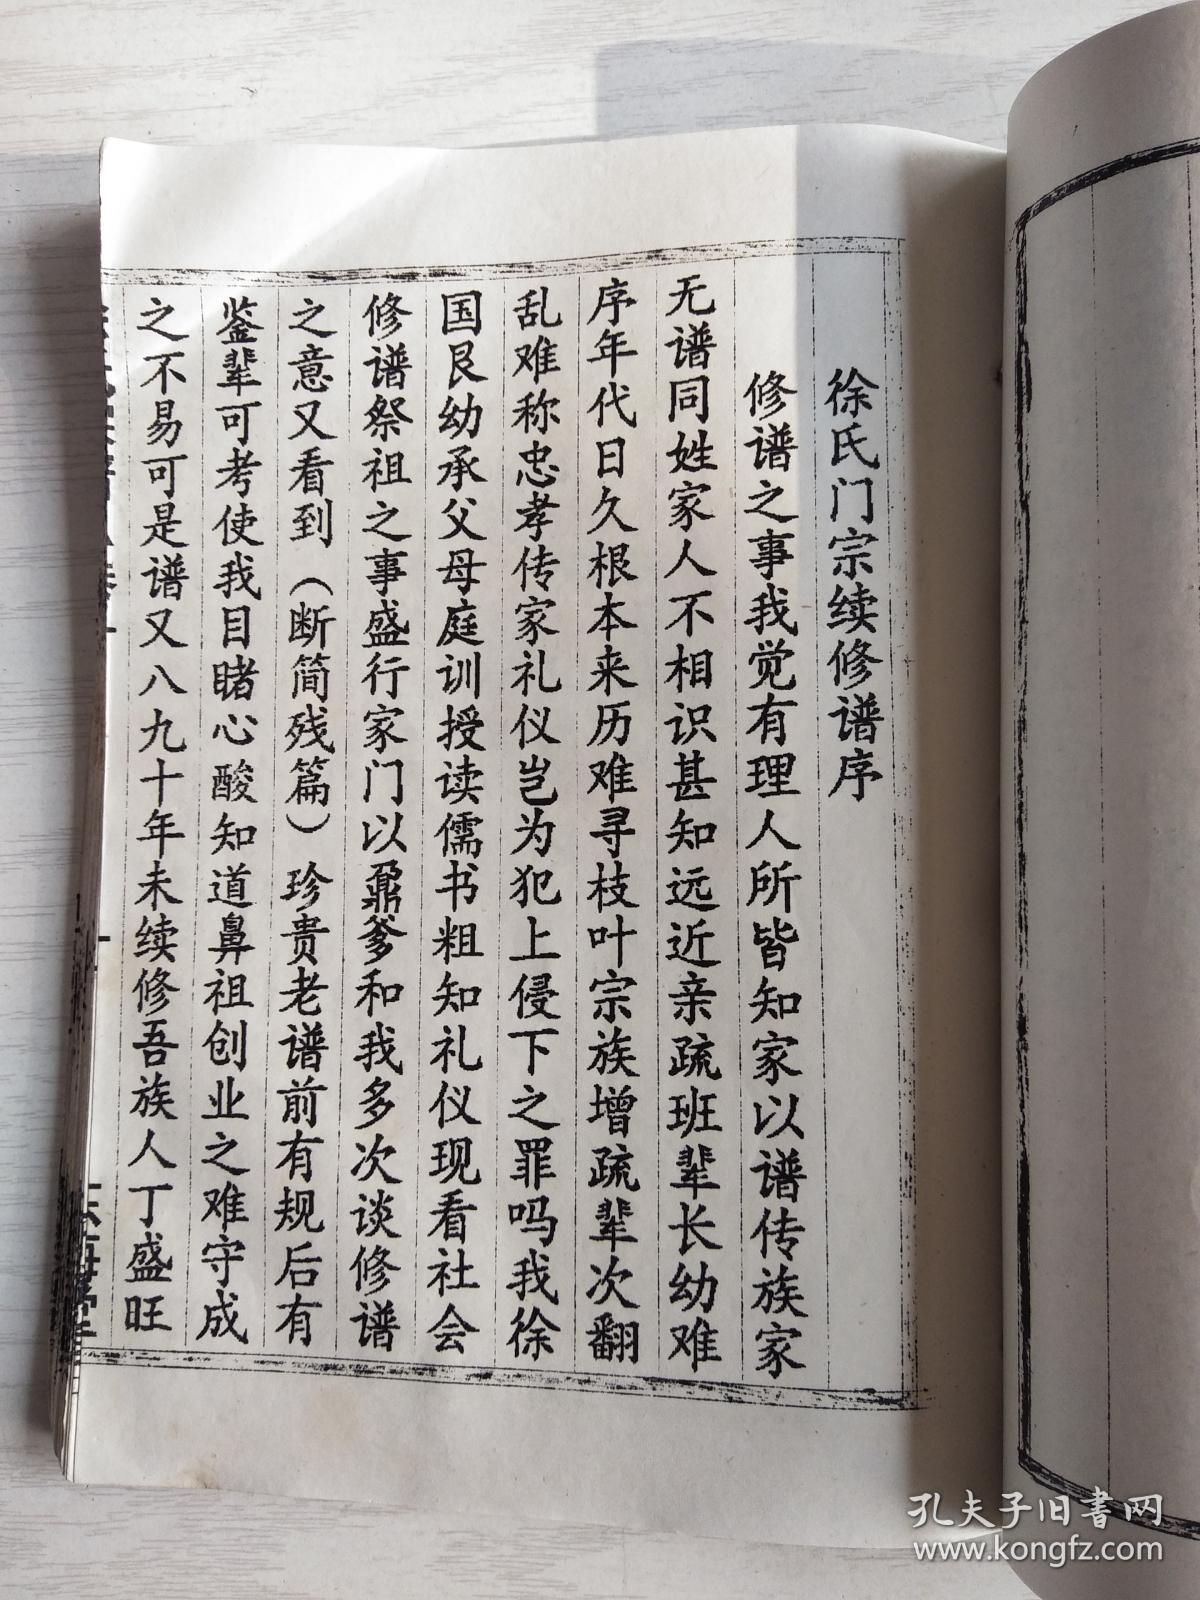 徐氏门宗续修谱序
修谱之事我觉有理人所皆知家以谱传族家
无谱同姓家人不相识甚知远近亲疏班辈长幼难
序年代日久根本来历难寻枝叶宗族增疏辈次翻
乱难称忠孝传家礼仪岂为犯上侵下之罪吗我徐
国艮幼承父母庭训授读儒书粗知礼仪现看社会
修谱祭祖之事盛行家门以鼐爹和我多次谈修谱
之意又看到（断简残篇）珍贵老谱前有规后有
鉴辈可考使我目睹心酸知道鼻祖创业之难守成
之不易可是谱又八九十年未续修吾族人丁盛旺
孔夫子旧书网
www.kongfz.com